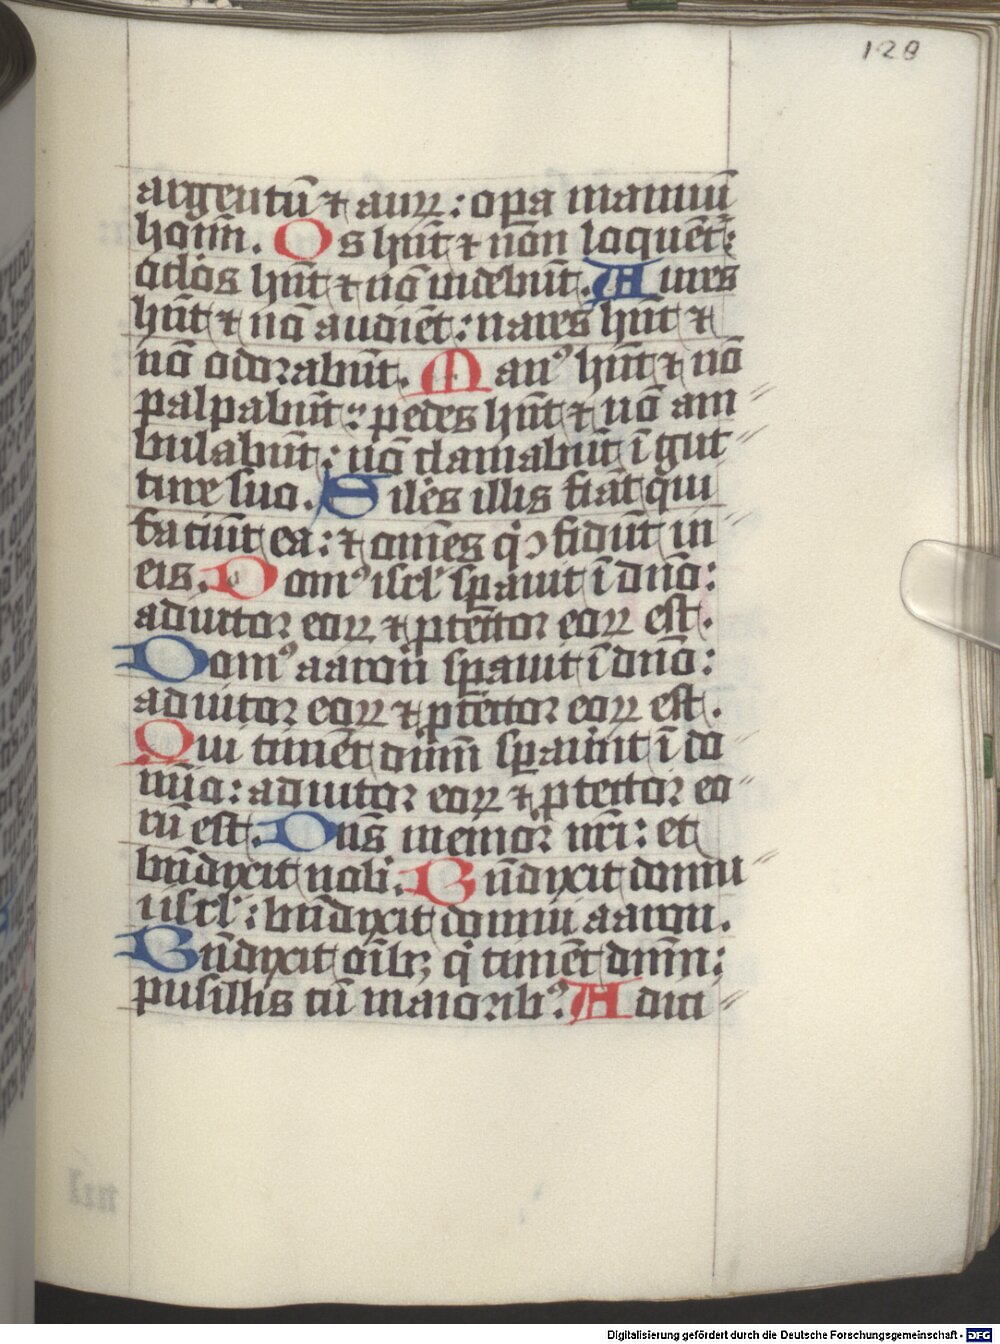 128
argentū ⁊ auꝝ : oꝑa manuū
hoīm. Os hn̄t ⁊ nōn loquēt :
oclōs hn̄t ⁊ nō videbūt. Aures
hn̄t ⁊ nō audiēt : nares hn̄t ⁊
nō odorabūt. Manꝰ hn̄t ⁊ nō
palpabūt : pedes hn̄t ⁊ nō am
bulabūt : nō clamabūt ī gut
ture suo. Silēs illis fiāt qui
faciūt ea : ⁊ om̄es qͥ ↄfidūt in
eis. Domꝰ isrl̄ sꝑauit ī dn̄o :
adiutor eoꝝ ⁊ ꝓtector eoꝝ est.
Domꝰ aaron sꝑauit ī dn̄o :
adiutor eoꝝ ⁊ ꝓtector eoꝝ est.
Qui timēt dn̄m sꝑaūnt ī do
mīo : adiutor eoꝝ ⁊ ꝓtector eo
rū est. Dn̄s memor nr̄i : et
bn̄dyxit nobī. Bn̄dyxit domui
isrl̄ : bn̄dyxit domui aaron.
Bn̄dyxit oīb; qͥ timēt dn̄m :
pusillis cū maioribꝰ. Adici
Digitalisierung gefördert durch die Deutsche Forschungsgemeinschaft - DFG